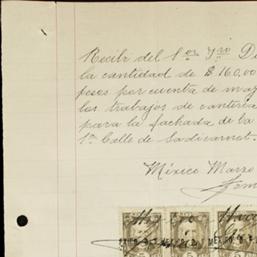 Recibí del Sor Yro D
la cantidad de $ 160.00
pesos por cuenta de
los trabajos de cantería
para la fachada de la
1ª Calle de Sadicarnot
México Marzo